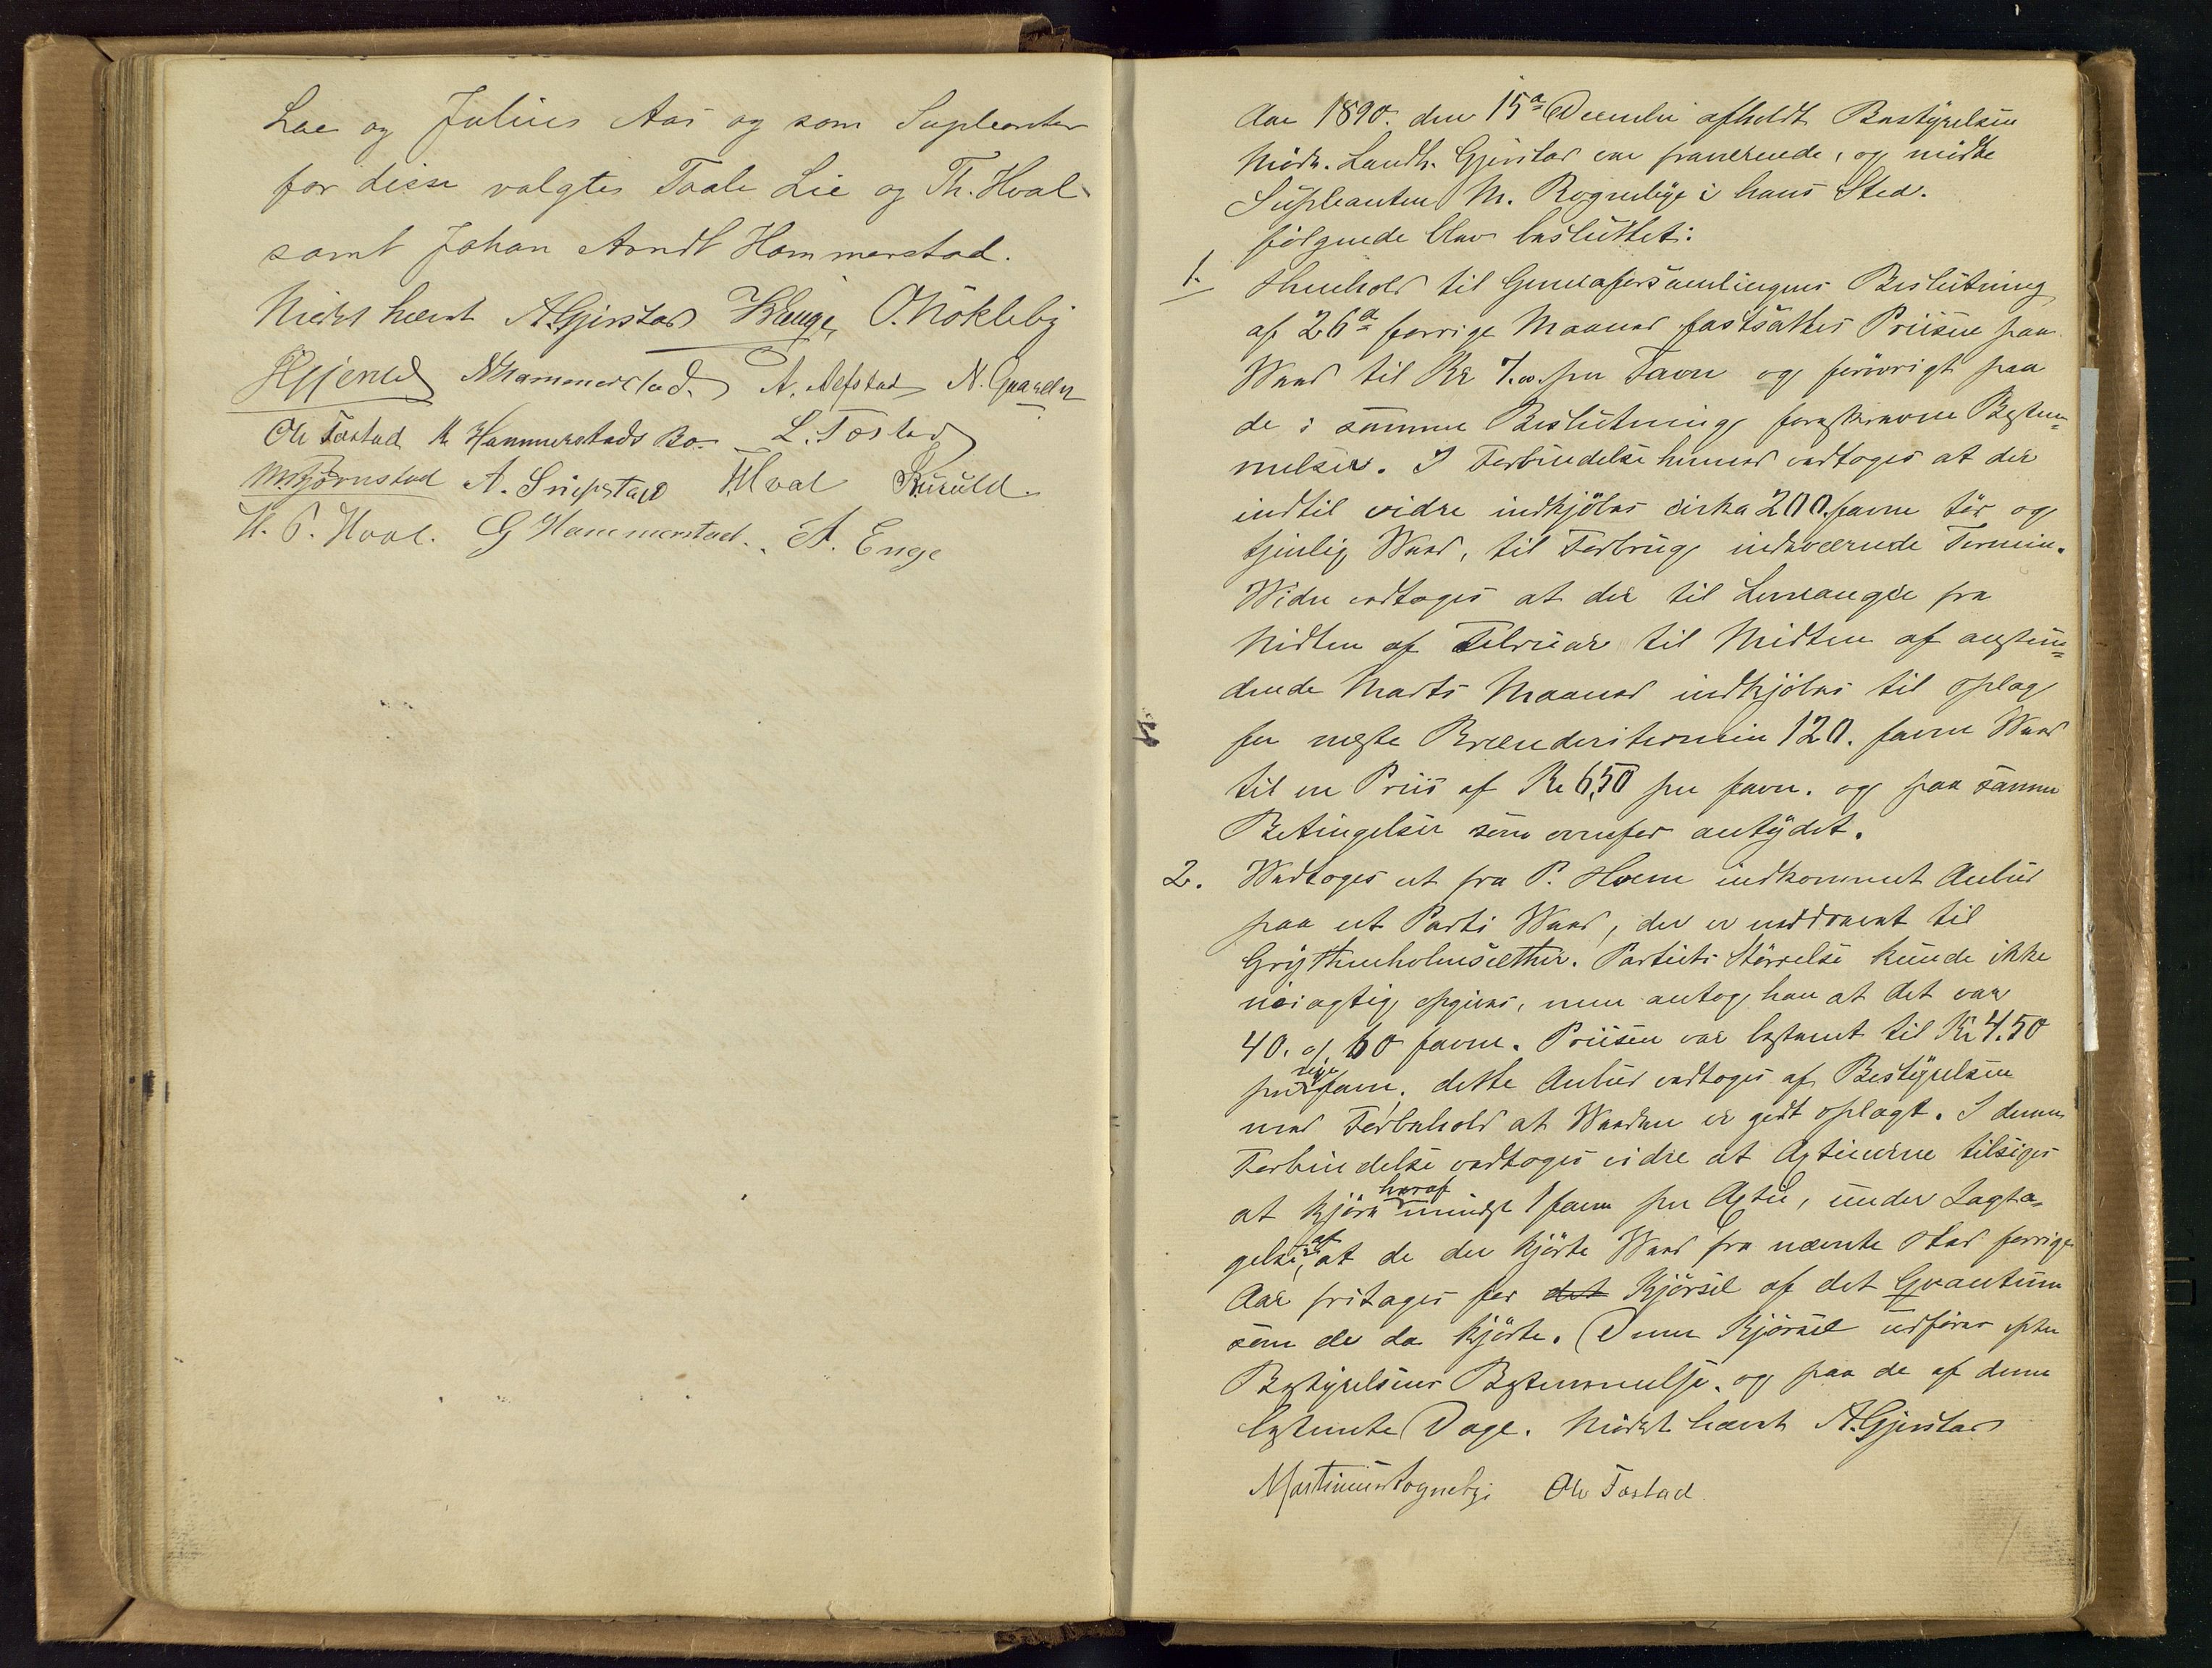 Lae og Julius Aas og som Supleanter
for disse valgtes Taale Lie og Th. Hval
samt Johan Arndt Hammerstad.
Mødet hævet A. Gjerstad K Enge O. Nøkleby
N Hammerstad. A. Alfstad N. Gaarder
Ole Tøstad M Hammerstads Bo L. Tøstad
M. Bjørnstad A. Snipstad T. Hval Ruuld.
H. P. Hval. G Hammerstad. A. Enge
Aar 1890. den 15de December afholdt Bestyrelsen
Møde. Landh. Gjerstad var fraværende, og mødte
Supleanten M. Rognebye i hans Sted.
følgende blev besluttet:
1. I henhold til Generaforsamlingens Beslutning
af 26de forrige Maaned fastsættes Priisen paa
Weed til Kr 7.00. per Favn og forøvrigt paa
de i samme Beslutning foreskrevne Bestem=
melser. I Forbindelse hermed vedtoges at der
indtil vidre indkjøbes cirka 200 favne tør og
tjenlig Weed, til Forbrug indeværende Termin.
Widre vedtoges at der til Leverangse fra
Midten af Februar til Midten af angsten=
drende Marts Maaned indkjøbes til oplag
for neste Brænderitermin 120. favne Weed
til en Priis af Kr 6,50 per favn. og paa samme
Betingelser som ovenfor antydet.
2. Wedtoges et fra P. Hoem indkommet Anbud
paa et Parti Weed, der er neddrevet til
Grythenholmsæther. Partiets Størrelse kunde ikke
nøiagtig opgives, men antog han at det var
40. a 60 favne. Priisen var bestemt til Kr 4.50
per favn, dette Anbud vedtoges af Bestyrelsen
med Forbehold at Weeden er godt oplagt. I denne
Forbindelse vedtoges vidre at Agtierne tilsiges
at kjøre heraf mindst 1 favn per Agtie, under Iagta-
gelse, af at de der kjørte Weed fra nævnte sted forrige
Aar fritages for det Kjørsel af det Qvantum
som de da kjørte. Denne Kjørsel udføres efter
Bestyrelsens Bestemmelse. og paa de af denne
bestemte Dage. Mødet hævet A. Gjerstad
Martinus Rognebye Ole Tøstad